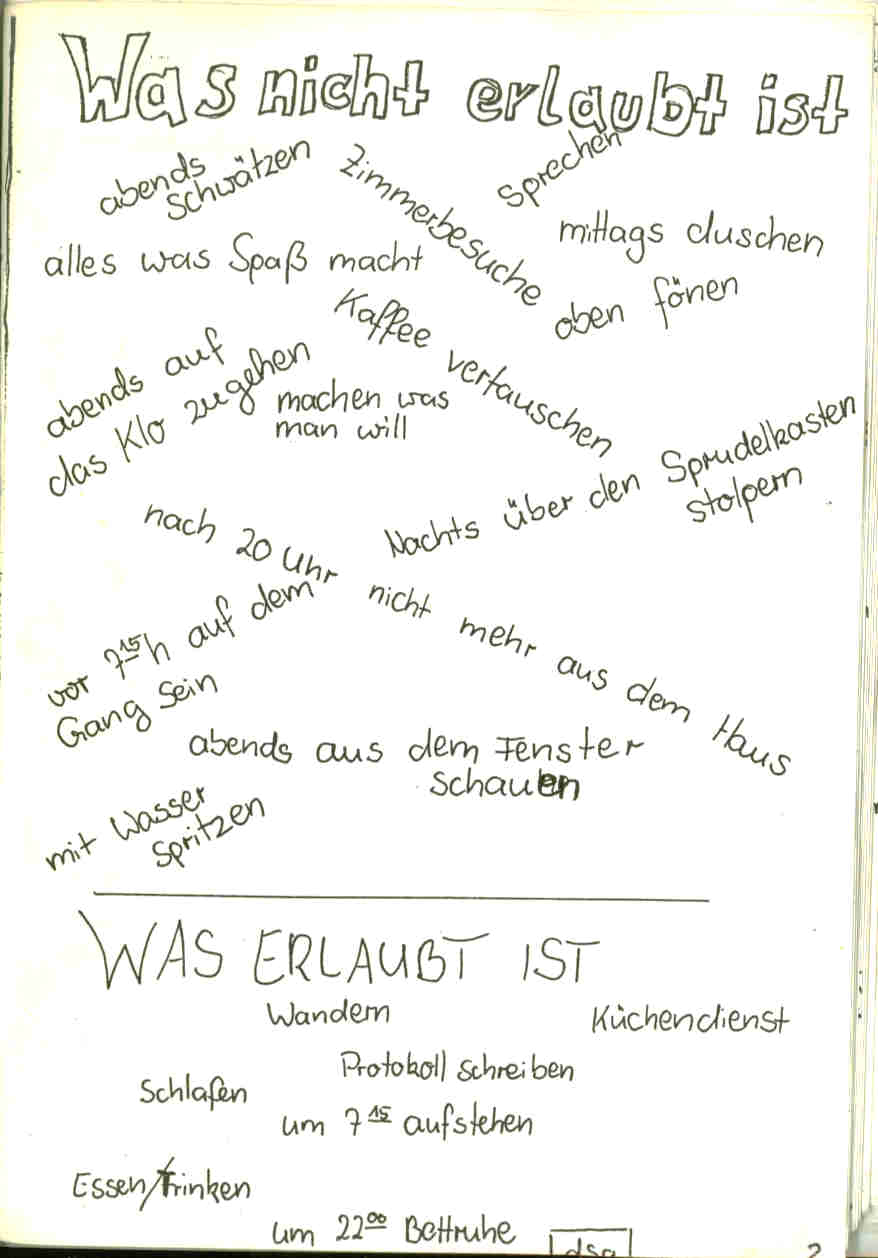 Was nicht erlaubt ist
abends
schwätzen
Zimmerbesuche
Sprechen
mittags duschen
alles was Spaß macht
oben fönen
Kaffee vertauschen
abends auf
das Klo zugehen
machen was
man will
Nachts über den Sprudelkasten
stolpern
nach 20 Uhr nicht mehr aus dem Haus
vor 7¹⁵h auf dem
Gang sein
abends aus dem Fenster
schauen
mit Wasser
spritzen
WAS ERLAUBT IST
Wandern
Küchendienst
Protokoll schreiben
Schlafen
um 7¹⁵ aufstehen
Essen/Trinken
um 22⁰⁰ Bettruhe